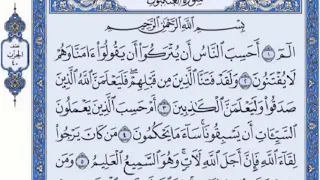 سورة العنكبوت
بِسْمِ اللَّهِ الرَّحْمَٰنِ الرَّحِيمِ
الٓمٓ ۝١ أَحَسِبَ النَّاسُ أَن يُتْرَكُوٓا۟ أَن يَقُولُوٓا۟ ءَامَنَّا وَهُمْ
لَا يُفْتَنُونَ ۝٢ وَلَقَدْ فَتَنَّا الَّذِينَ مِن قَبْلِهِمْ ۖ فَلَيَعْلَمَنَّ اللَّهُ الَّذِينَ
صَدَقُوا۟ وَلَيَعْلَمَنَّ الْكَٰذِبِينَ ۝٣ أَمْ حَسِبَ الَّذِينَ يَعْمَلُونَ
السَّيِّـَٔاتِ أَن يَسْبِقُونَا ۚ سَآءَ مَا يَحْكُمُونَ ۝٤ مَن كَانَ يَرْجُوا۟
لِقَآءَ اللَّهِ فَإِنَّ أَجَلَ اللَّهِ لَـَٔاتٍ ۚ وَهُوَ السَّمِيعُ الْعَلِيمُ ۝٥ وَمَن